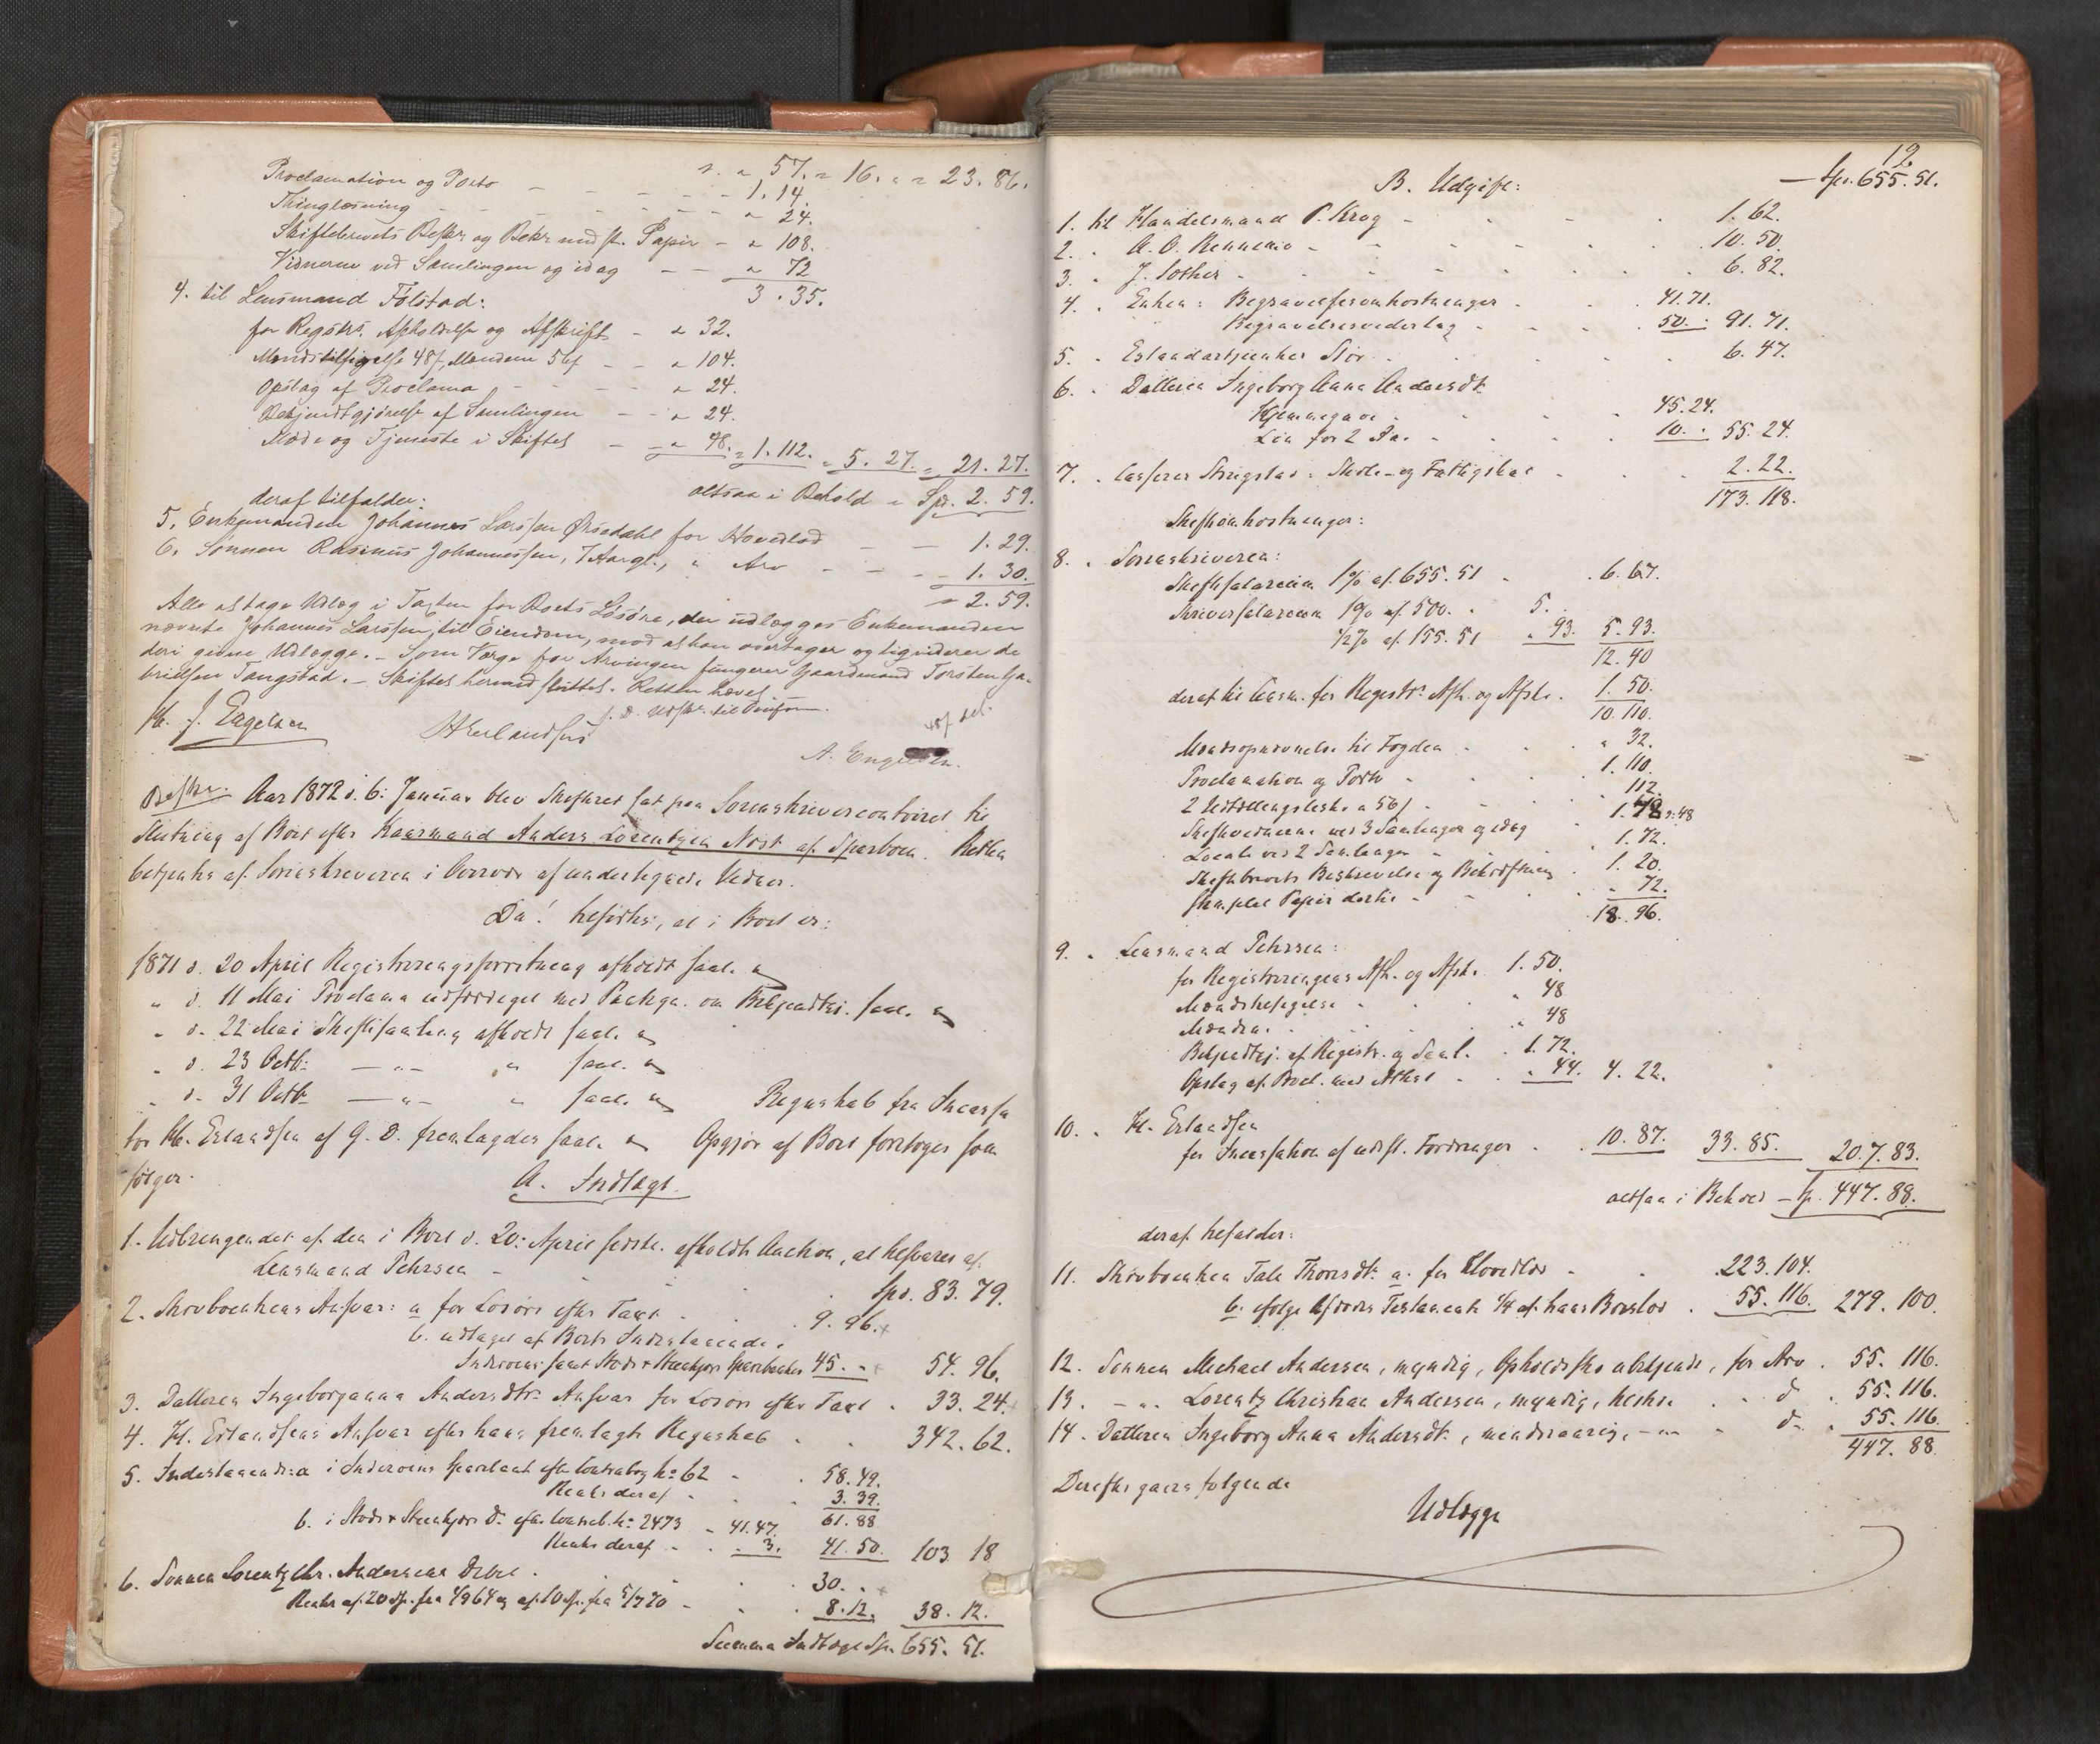 s. " 57. " 16. " " 23. 86.
Proclamation og Porto — — — 1. 14.
Thinglæsning — — " 24.
Skiftebrevets Beskr. og Bekr. med st. Papir — " 108.
Vidnerne ved Samlingen og idag — — " 72
3. 35.
4. til Lensmand Følstad:
for Registrs. Afholdelse og Afskrift — " 32.
Mændstilsigelse 48 ß, Mændene 56 ß — " 104.
Opslag af Proclama — — " 24.
Bekjendtgjørelse af Samlingen — — " 24.
Møde og Tjeneste i Skiftet — — " 48. = 1. 112. = 5. 27. = 21. 27.
altsaa i Behold = Spd. 2. 59.
deraf tilfalder:
5. Enkemanden Johannes Larssen Ørsedahl for Hovedlod — — 1. 29.
6. Sønnen Rasinus Johannessen, 7 Aar gl., " Arv — — 1. 30.
= 2. 59.
Alle af tage Udlæg i Taxten for Boets Løsøre, der udlægges Enkemanden
nævnte Johannes Larssen, til Eiendom, mod at han overtager og ligviderer de
deri givne Udlægge. — Som Værge for Arvingen fungerer Gaardmand Torsten Ga-
brielsen Tangstad. — Skiftet hermed sluttet. Retten hævet.
J. Engelsen
HErlandsen
A. Engelsen.
Aar 1872 d. 6. Januar blev Skifteret sat paa Sorenskrivercontoiret til
Slutning af Boet efter Kaarmand Anders Lorentzen Nøst af Sparboen. Retten
betjentes af Sorenskriveren i Overvær af undertegnede Vidner.
Da! hefudtes, at i Boet er:
1871 d. 20 April Registreringsforretning afholdt saal.
" d. 11 Mai Proclama udfærdiget med Paategn. om Bekjendtgj. saal.
" d. 22 Mai Skiftesamling afholdt saal.
" d. 23 Octb. — " — " saal.
" d. 31 Octb. — " — " saal. Regnskab fra Incassa
tor H. Erlandsen af G. D. fremlagdes saal. Opgjør af Boet foretoges som
følger.
A. Indtægt.
1. Udbringendet af den i Boet d. 20. April sidstl. afholdte Auction, at tilsvares af
Lensmand Pehrsen — Spd. 83. 79.
2. Skovboenkens Ansvar: a for Løsøre efter Taxt . 9. 96.
b. udtaget af Boets Indestaaende i
Inderøens samt Stods & Steenkjær Sparebanker 45. " 54. 96.
3. Datteren Ingeborganna Andersdtrs Ansvar for Løsøre efter Taxt . 33. 24.
4. H. Erlandsens Ansvar efter hans fremlagte Regnskab . . 342. 62.
5. Indestaaende: a i Inderøens Sparebank efter Contrabog No 62 . 58. 49.
Renter deraf . . 3. 39.
61. 88
b. i Stods & Steenkjær Do. efter Contrab. No 2473 . 41. 47.
Renter deraf . . 3. 41. 50. 103. 18
6. Sønnen Lorentz Chr. Andersens Debet . . 30. .
Renter af 20 Sp. fra 4/9 64 og af 10 Sp. fra 5/7 70 — . . 8. 12. 38. 12.
Summa Indtægt Spd. 655. 51.
12
— Spd. 655. 51.
B. Udgift:
1. til Handelsmand P. Krog — . . . 1. 62.
2. " A. O. Rennemo — . . . 10. 50.
3. " J. Sother . . . 6. 82.
4. " Enken: Begravelsesomkostninger . . 41. 71.
Begravelsesvederlag . . . 50. . 91. 71.
5. " Eslandsstjenker Stør . . . 6. 47.
6. " Datteren Ingeborg Anna Andersdt.
Hjemmegave . . . 45. 24.
Løn for 2 Aar . . . 10. . 55. 24.
7. " Casserer Stringstad: Skole- og Fattigskat . . . 2. 22.
173. 118.
Skifteomkostninger:
8. " Sorenskriveren:
Skiftesalarium 1% af 655. 51 . . 6. 67.
Skriversalarium 1% af 500. . 5. .
1/2% af 155. 51 " 93. 5. 93.
12. 40
deraf til Lensm. for Registrs. Afh. og Afskr. . 1. 50.
10. 110.
Mændsopnævnelse til Fogden . . . " 32.
Proclamation og Porto . . . 1. 110.
2 Udstillingsbeskr. a 56 ß . . . 112.
Skiftevidnerne ved 3 Samlinger og idag . 1. 48
Locale ved 2 Samlinger . . . 1. 72.
Skiftebrevets Beskrivelse og Bekræftning . 1. 20.
Stemplet Papir dertil . . . " 72.
18. 96.
9. " Lensmand Pehrsen:
for Registreringens Afh. og Afskr. 1. 50.
Mændstilsigelse . . " 48
Mændene . . . " 48
Bekjendtgj. af Registr. og Saml. . 1. 72.
Opslag af Procl. med Attest . . " 44. 4. 22.
10. " H. Erlandsen
for Incassation af udest. Fordringer . . 10. 87. 33. 85. 207. 83.
altsaa i Behold — Sp. 447. 88.
deraf tilfalder:
11. Skovboenken Tale Thoresdt. a. for Hovedlod . . 223. 104.
b. efter Afdødes Testamente 1/4 af hans Boeslod . 55. 116. 279. 100.
12. Sønnen Michael Andersen, myndig, Opholdssted ubekjendt, for Arv . 55. 116.
13. — " . Lorentz Christian Andersen, myndig, . . do . 55. 116.
14. Datteren Ingeborg Anna Andersdt., mindreaarig, — " — " do " 55. 116.
447. 88.
Derefter gjøres følgende
Udlægge